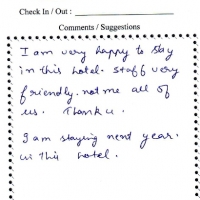 Check In / Out :
Comments / Suggestions
I am very happy to stay
in this hotel. Staff very
friendly. not me all of
us. Thank u.
I am staying next year.
in this hotel.